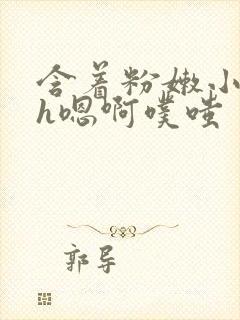 含着粉嫩小
h嗯啊噗嗤
郭导